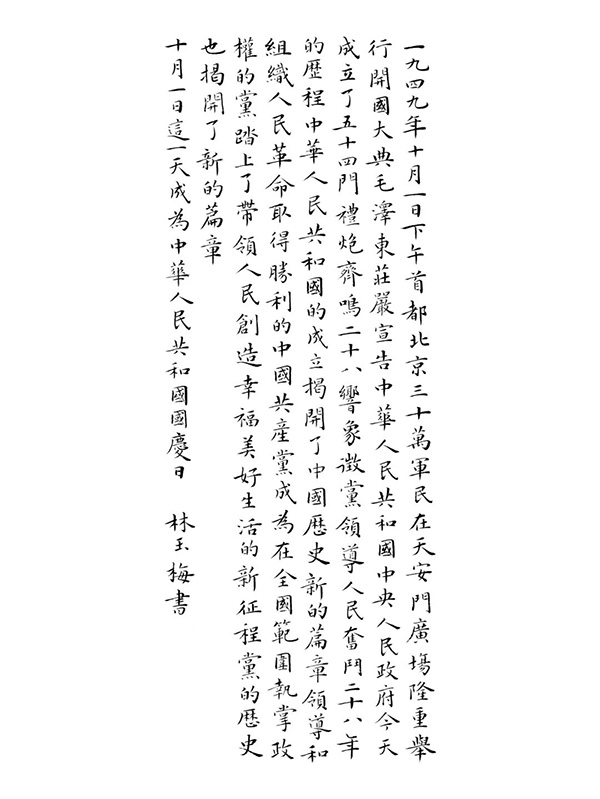 一九四九年十月一日下午首都北京三十萬軍民在天安門廣場隆重舉
行開國大典毛澤東莊嚴宣告中華人民共和國中央人民政府今天
成立了五十四門禮炮齊鳴二十八響象徵黨領導人民奮鬥二十八年
的歷程中華人民共和國的成立揭開了中國歷史新的篇章領導和
組織人民革命取得勝利的中國共產黨成為在全國範圍執掌政
權的黨踏上了帶領人民創造幸福美好生活的新征程黨的歷史
也揭開了新的篇章
十月一日這一天成為中華人民共和國國慶日 林玉梅書